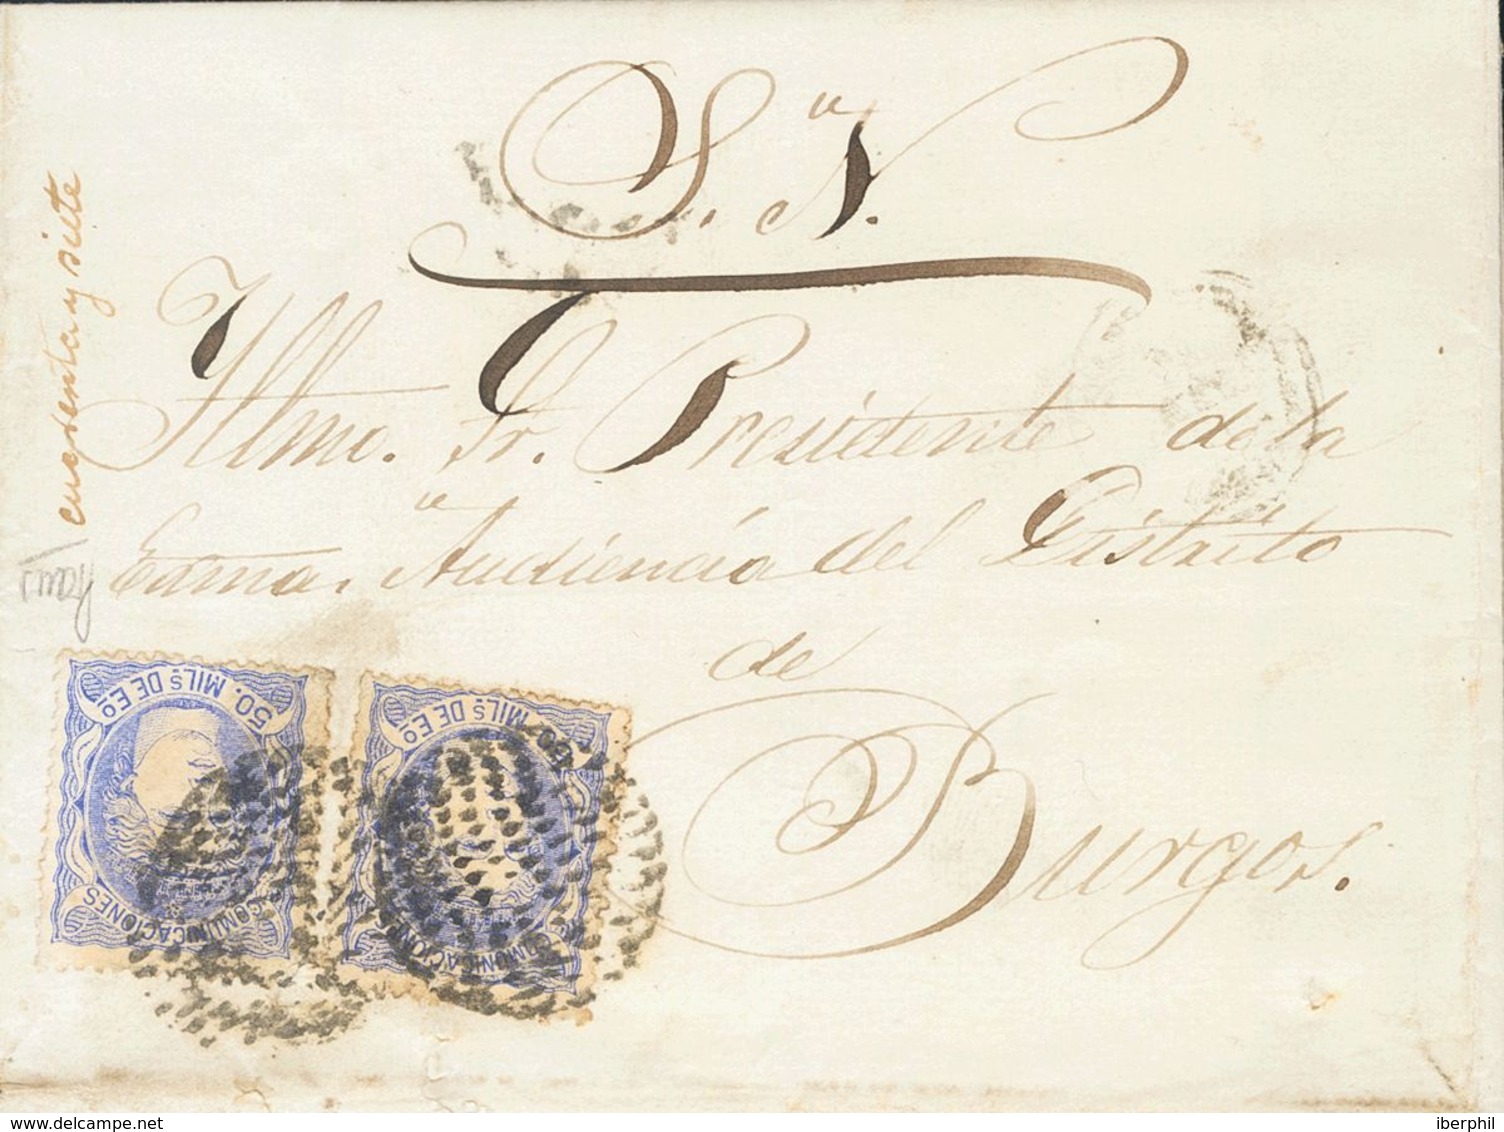 S. N.
Illmo. Sr. Presidente de la
Exma. Audiencia del Distrito
de
Burgos.
cincuenta y siete
50. MILS DE EO
COMUNICACIONES
50. MILS DE EO
COMUNICACIONES
iberphil